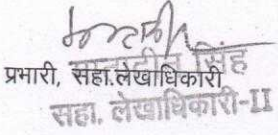 सिंह
प्रभारी, सहा.लेखाधिकारी
सहा. लेखाधिकारी-II